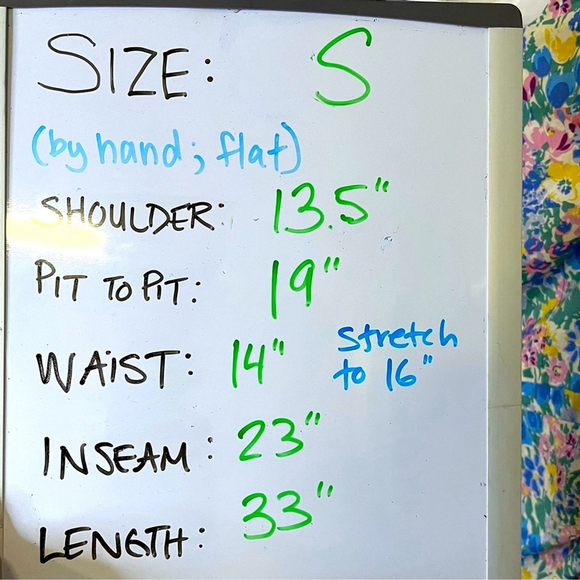 SIZE: S
(by hand; flat)
SHOULDER: 13.5"
PIT TO PIT: 19"
WAIST: 14" stretch
to 16"
INSEAM: 23"
LENGTH: 33"